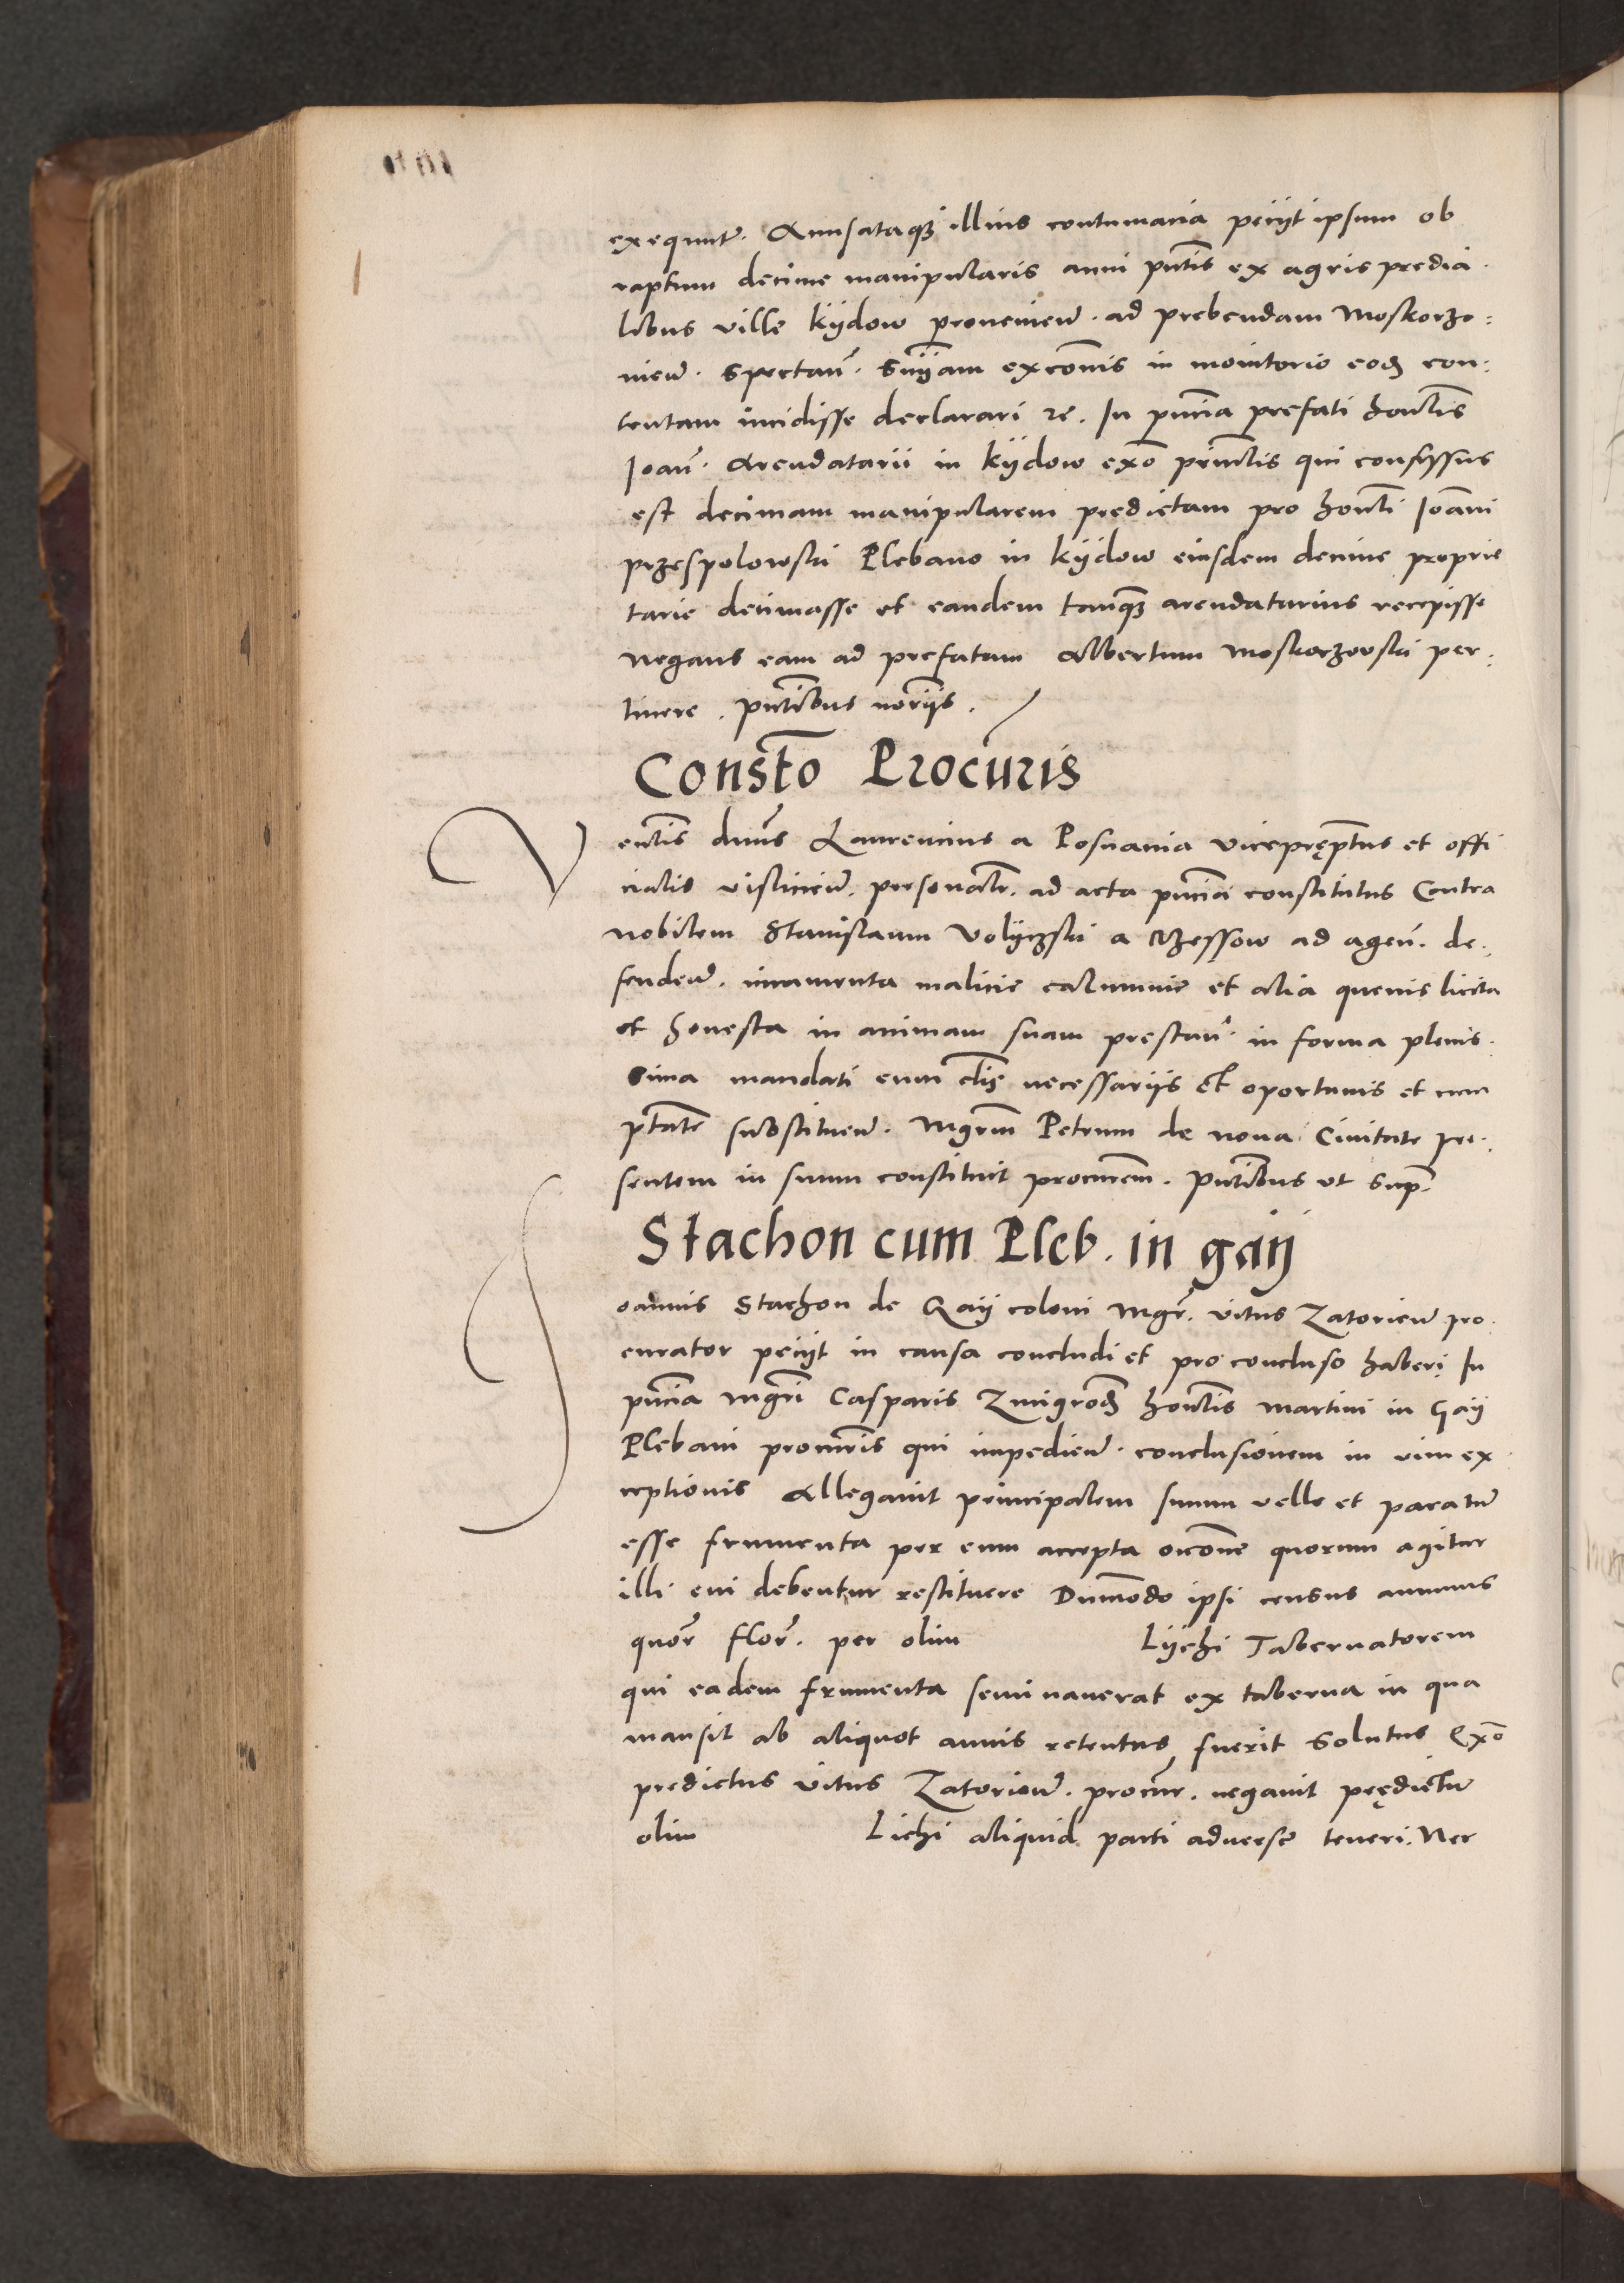 exequunt᷑. Accusataqꝫ illius contumacia peciit ipsum ob
raptum decime manipularis anni pn̄tis ex agris predia-
libus ville Kijdow proveniend. ad prebendam Moskorzo-
vien̄. spectan̄. sn̄iam excōnis in monitorio eod̄ con-
tentam incidisse declarari ꝛc̄. In pn̄cia prefati hon̄lis
Joan̄. Arendatarii in Kijdow exō prin̄clis qui confessus
est decimam manipularem predictam pro hon̄li Joānni
przespolowski Plebano in Kijdow eiusdem decime proprie
tarie decimasse et eandem tanq̄ꝫ arendatarius recepisse
negans eam ad prefatum Albertum Moskorzowski per-
tinere. pn̄tibus nor̄iis.
Constō Procuris
en̄lis dn̄us Laurencius a Posnania viceprep̄tus et offi
cialis vislicien̄. personalr. ad acta pn̄cia constitutus Contra
nobilem Stanislaum Volijczski a Rzessow ad agen̄. de-
fenden̄. iuramenta malicie calumnie et alia quevis licita
et honesta in animam suam prestan̄. in forma plenis-
sima mandati cum cl̄is necessariis et oportunis et cum
ptāte substituen̄. Mgr̄m Petrum de nova Civitate pre-
sentem in suum constituit procur̄em. pn̄tibus ut sup̄.
Stachon cum Pleb. in gaij
oannis Stachon de Gaij coloni Mgr̄. Vitus Zatorien̄ pro-
curator peciit in causa concludi et pro concluso haberi In
pn̄cia Mgr̄i Casparis Zmigrod̄ hon̄lis Martini in Gaij
Plebani procur̄is qui impedien̄. conclusionem in vim ex
ceptionis Allegavit principalem suum velle et paratū
esse frumenta per eum accepta occōne quorum agitur
illi cui debentur restituere Dummodo ipsi census annuus
quor̄ flor̄. per olim Lijchi Tabernatorem
qui eadem frumenta seminaverat ex taberna in qua
mansit ab aliquot annis retentus fuerit solutus Exō
predictus Vitus Zatorien̄. procur. negavit predictū
olim Lichi aliquid parti adverse teneri. Nec